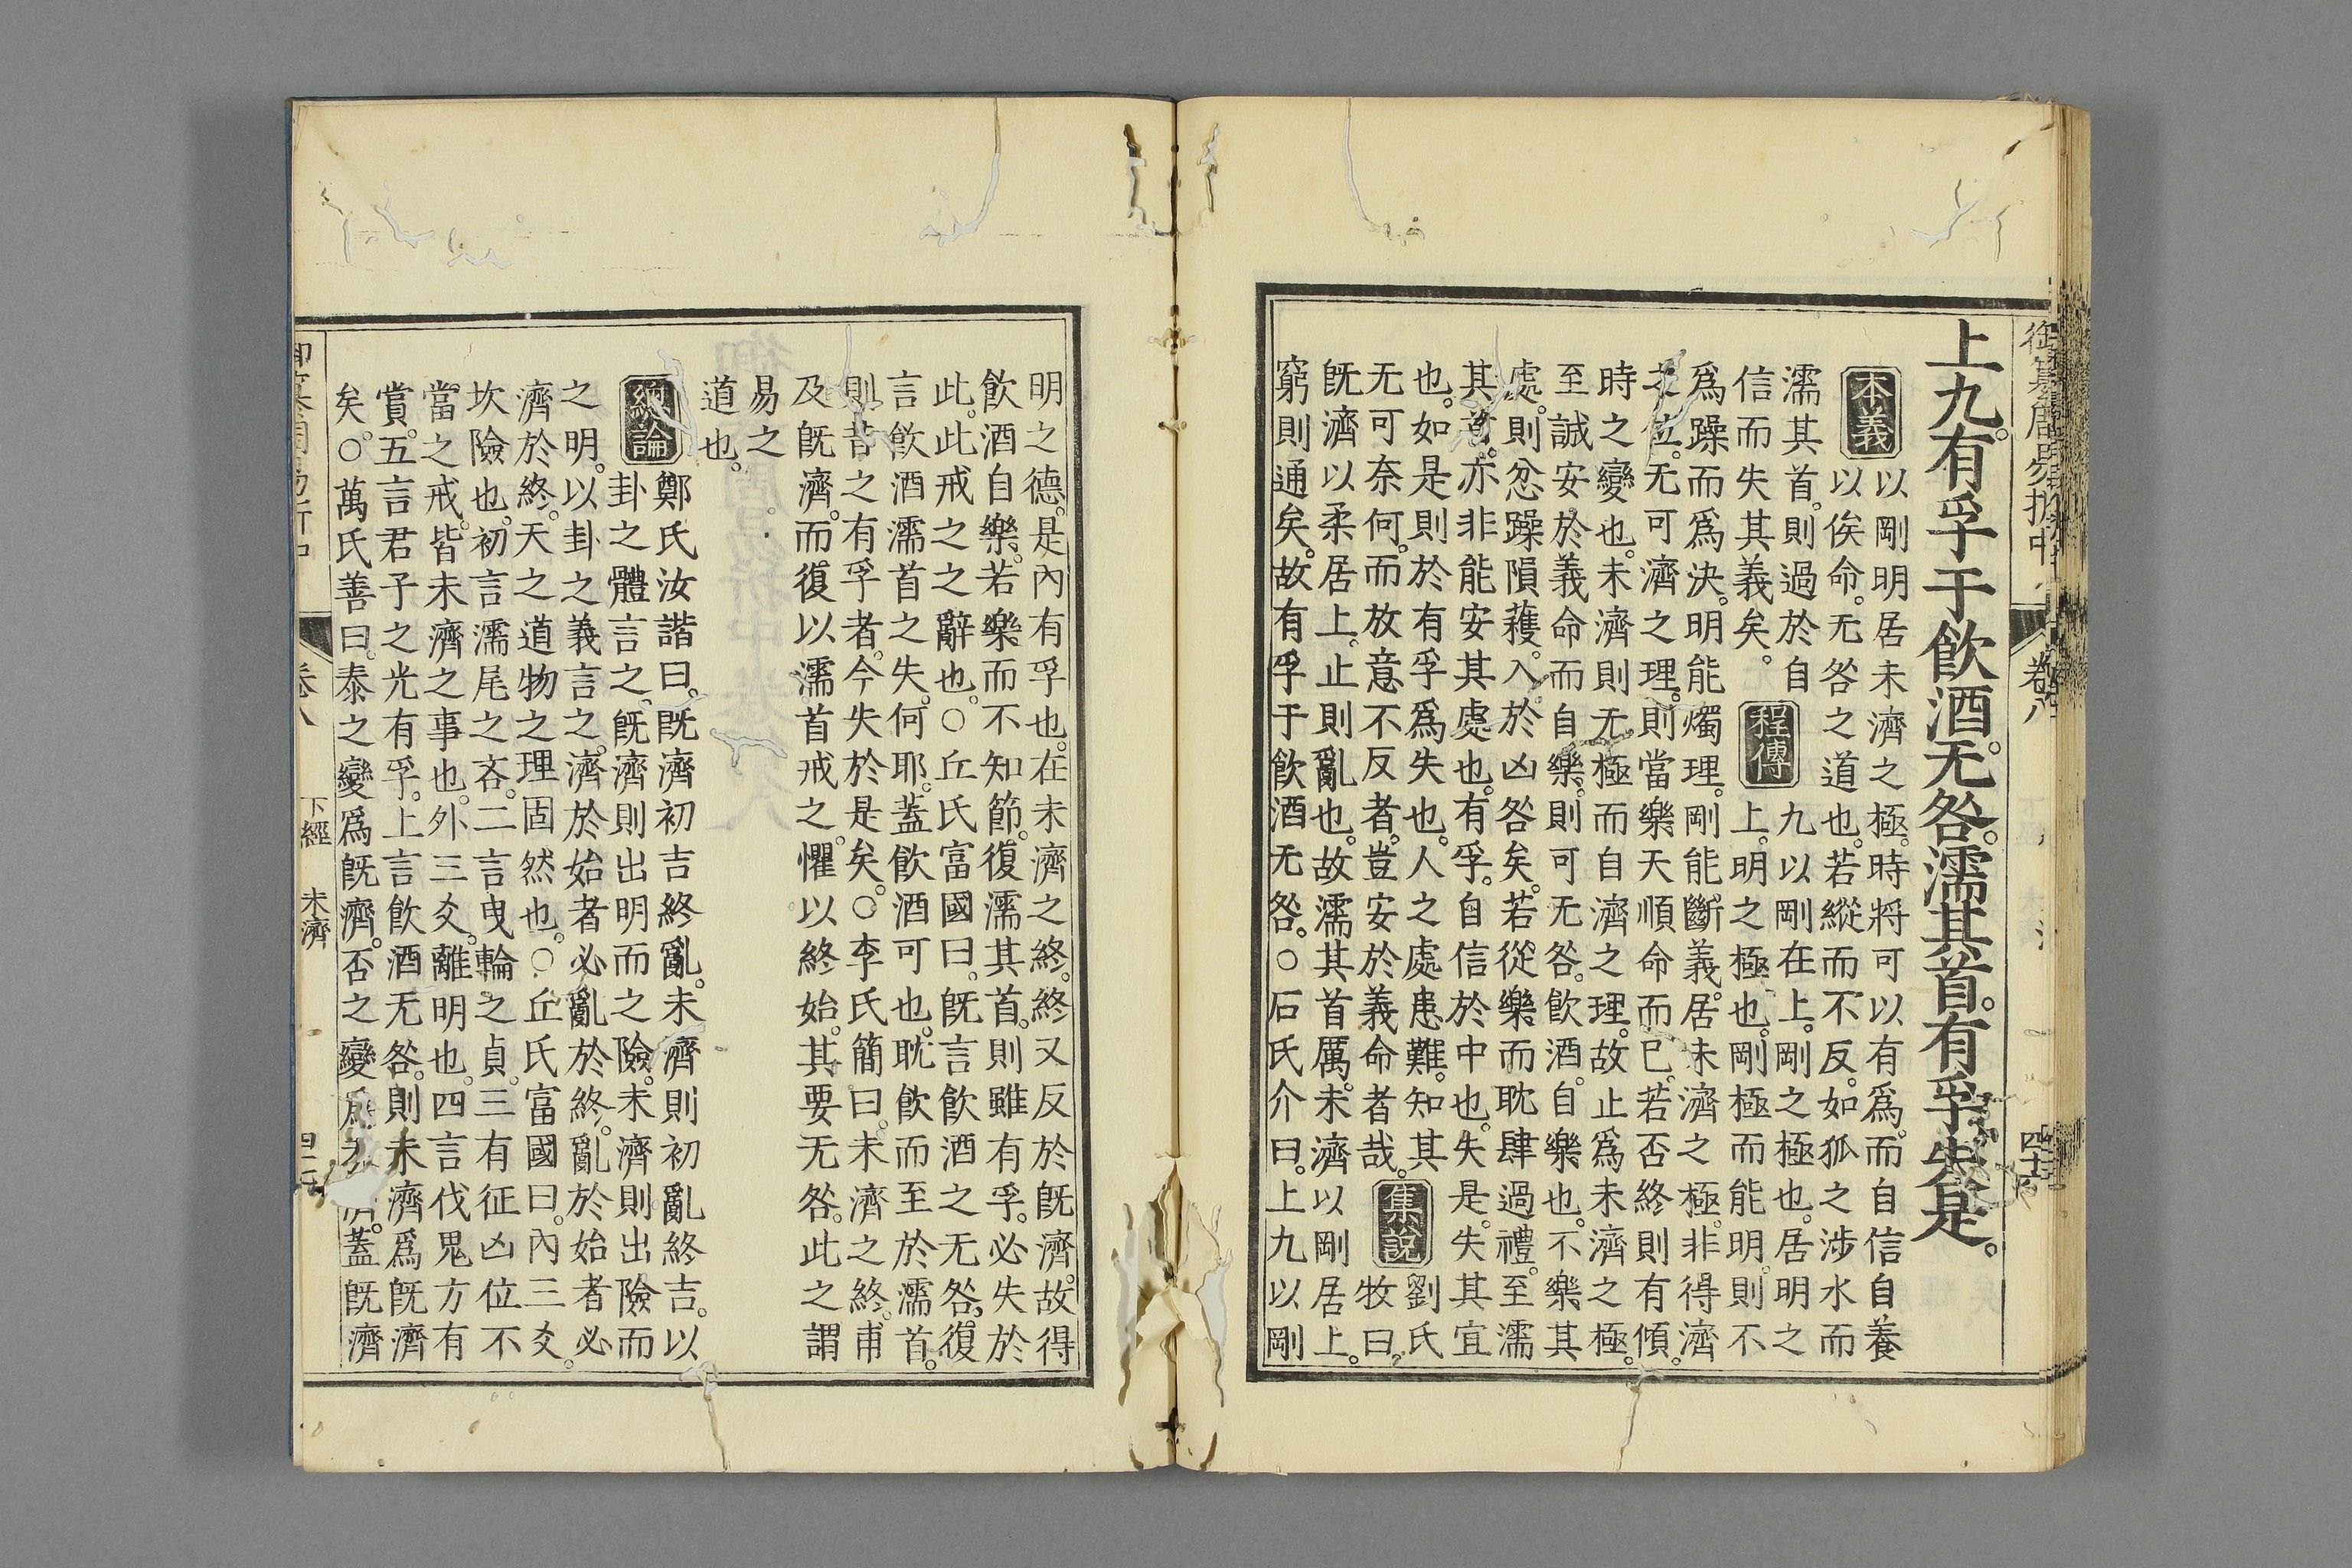 御纂周易折中 卷八 四十六
上九。有孚于飲酒。无咎。濡其首。有孚失是。
本義 以剛明居未濟之極。時將可以有爲。而自信自養
以俟命。无咎之道也。若縱而不反。如狐之涉水而
濡其首。則過於自 程傳 九以剛在上。剛之極也。居明之
信而失其義矣。 上。明之極也。剛極而能明。則不
爲躁而爲決。明能燭理。剛能斷義。居未濟之極。非得濟
之位。无可濟之理。則當樂天順命而已。若否終則有傾。
時之變也。未濟則无極而自濟之理。故止爲未濟之極。
至誠安於義命而自樂。則可无咎。飲酒。自樂也。不樂其
處。則忿躁隕穫。入於凶咎矣。若從樂而耽肆過禮。至濡
其首。亦非能安其處也。有孚。自信於中也。失是。失其宜
也。如是則於有孚爲失也。人之處患難。知其 集說 劉氏
无可奈何。而放意不反者。豈安於義命者哉。 牧曰。
旣濟以柔居上。止則亂也。故濡其首厲。未濟以剛居上。
窮則通矣。故有孚于飲酒无咎。○石氏介曰。上九以剛
明之德。是內有孚也。在未濟之終。終又反於旣濟。故得
飲酒自樂。若樂而不知節。復濡其首。則雖有孚。必失於
此。此戒之之辭也。○丘氏富國曰。旣言飲酒之无咎。復
言飲酒濡首之失。何耶。蓋飲酒可也。耽飲而至於濡首。
則昔之有孚者。今失於是矣。○李氏簡曰。未濟之終。甫
及旣濟。而復以濡首戒之。懼以終始。其要无咎。此之謂
易之
道也。
總論 鄭氏汝諧曰。旣濟初吉終亂。未濟則初亂終吉。以
卦之體言之。旣濟則出明而之險。未濟則出險而
之明。以卦之義言之。濟於始者必亂於終。亂於始者必
濟於終。天之道物之理固然也。○丘氏富國曰。內三爻。
坎險也。初言濡尾之吝。二言曳輪之貞。三有征凶位不
當之戒。皆未濟之事也。外三爻。離明也。四言伐鬼方有
賞。五言君子之光有孚。上言飲酒无咎。則未濟爲旣濟
矣。○萬氏善曰。泰之變爲旣濟。否之變爲未濟。蓋旣濟
卷八 下經 未濟